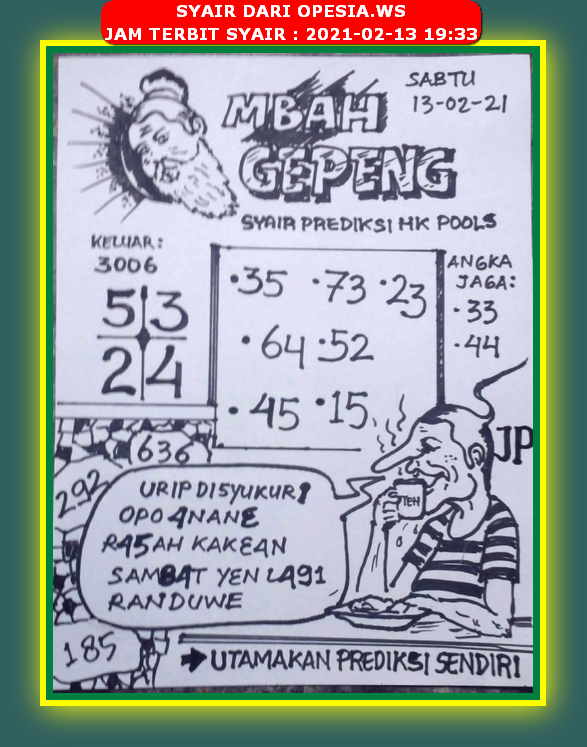 SYAIR DARI OPESIA.WS
JAM TERBIT SYAIR : 2021-02-13 19:33
SABTU
13-02-21
MBAH
GEPENG
SYAIR PREDIKSI HK POOLS
KELUAR:
3006
5 3
2 4
•35 •73 •23
•64 •52
•45 •15
ANGKA
JAGA:
•33
•44
JP
636
292
185
TEH
URIP DISYUKURI
OPO ANANE
RA5AH KAKEAN
SAMBAT YEN LA91
RANDUWE
UTAMAKAN PREDIKSI SENDIRI